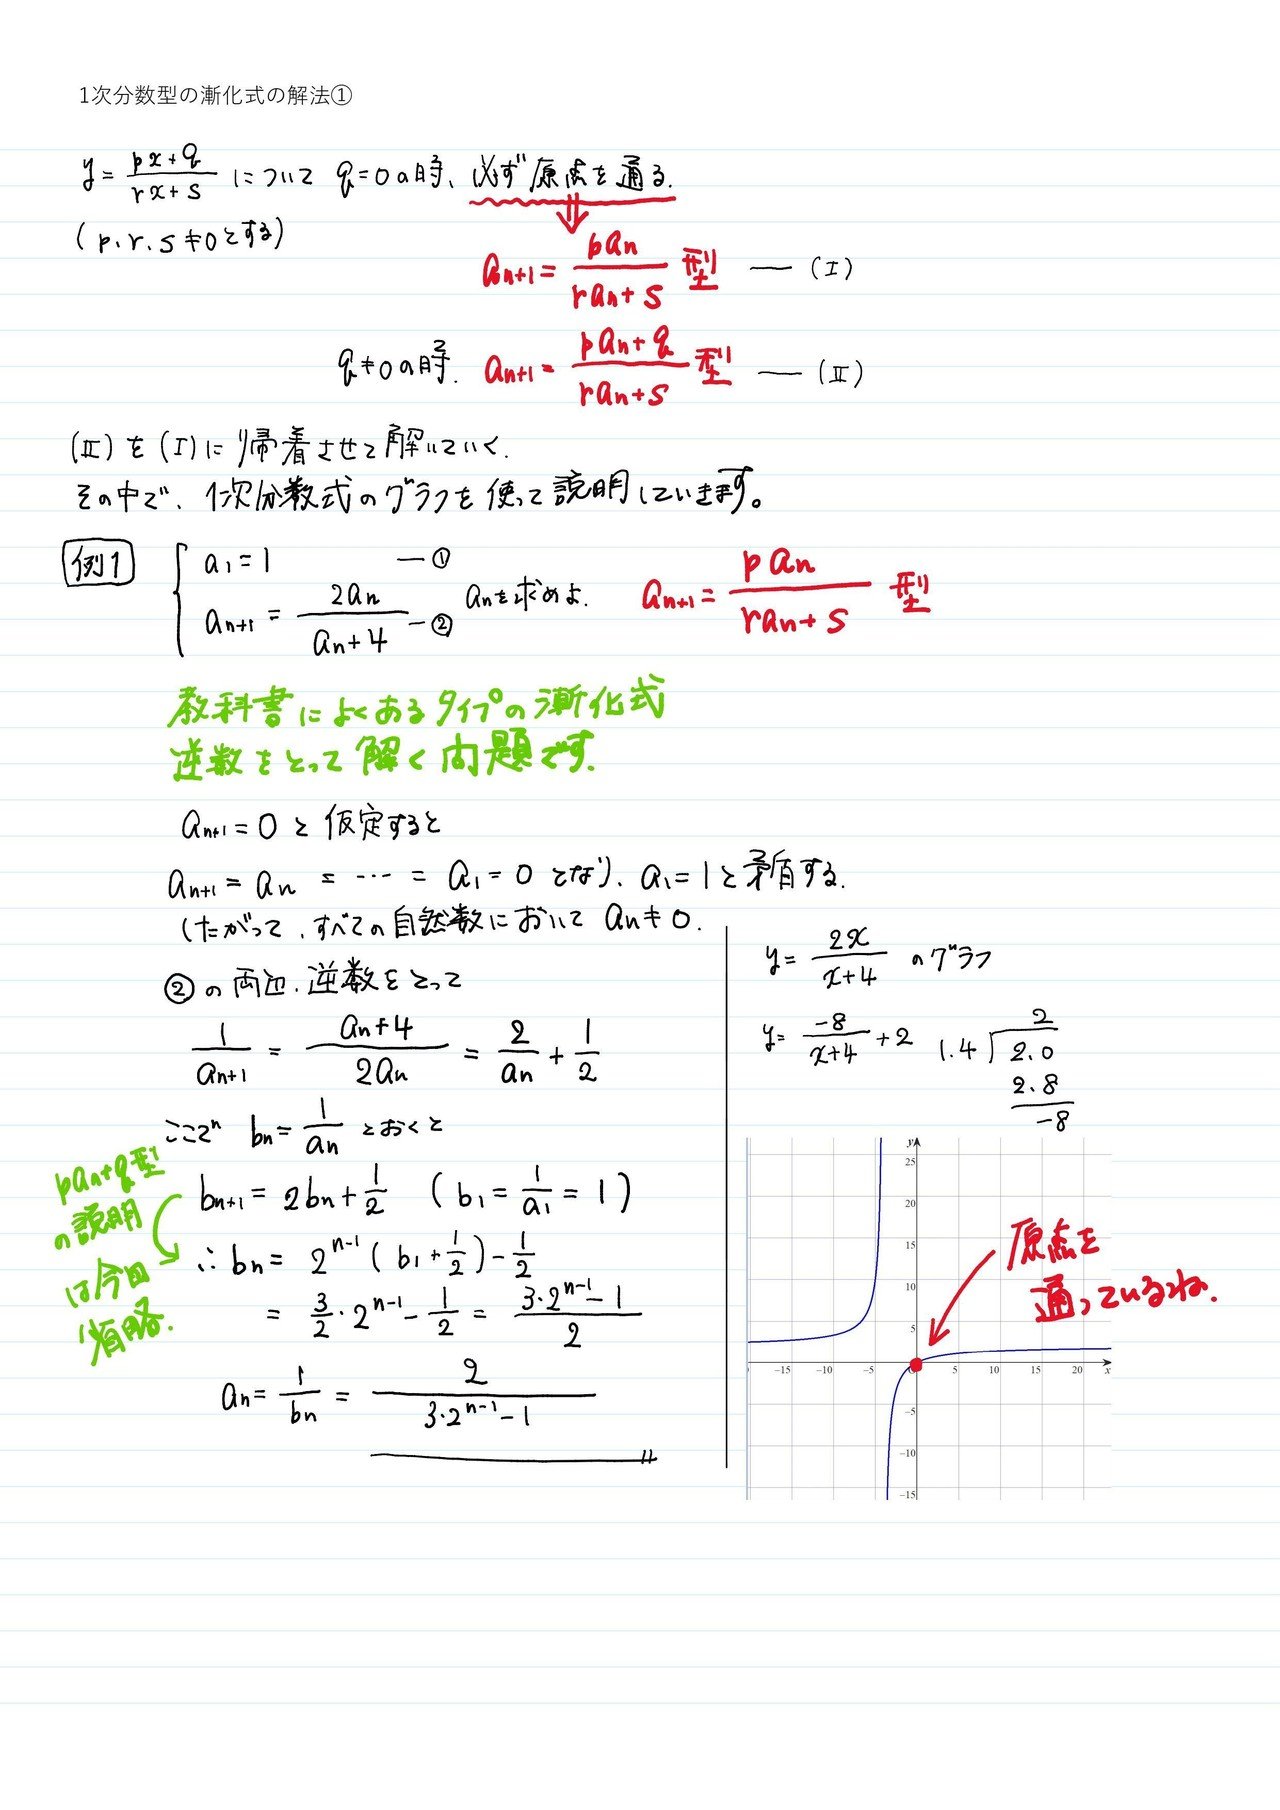 1次分数型の漸化式の解法①
y = (px+q)/(rx+s) について q=0の時、必ず原点を通る.
(p, r, s ≠0とする)
an+1 = pan/(ran+s) 型 ―(I)
q≠0の時. an+1 = (pan+q)/(ran+s) 型 ―(II)
(II)を(I)に帰着させて解いていく.
その中で、1次分数式のグラフを使って説明していきます。
例1
a1 = 1 ―①
an+1 = 2an/(an+4) ―② anを求めよ.
an+1 = pan/(ran+s) 型
教科書によくあるタイプの漸化式
逆数をとって解く問題です.
an+1 = 0 と仮定すると
an+1 = an = … = a1 = 0 となり、a1 = 1 と矛盾する.
したがって、すべての自然数において an≠0.
②の両辺、逆数をとって
1/an+1 = (an+4)/2an = 2/an + 1/2
ここで bn = 1/an とおくと
bn+1 = 2bn + 1/2 (b1 = 1/a1 = 1)
∴ bn = 2^{n-1}(b1 + 1/2) - 1/2
= 3/2・2^{n-1} - 1/2 = (3・2^{n-1} - 1)/2
an = 1/bn = 2/(3・2^{n-1} - 1)
pan+q型
の説明
は今回
省略.
y = 2x/(x+4) のグラフ
y = -8/(x+4) + 2
2
1.4 ) 2.0
2.8
-8
y
25
20
15
10
5
-15 -10 -5 0 5 10 15 20 x
-5
-10
-15
原点を
通っているね.